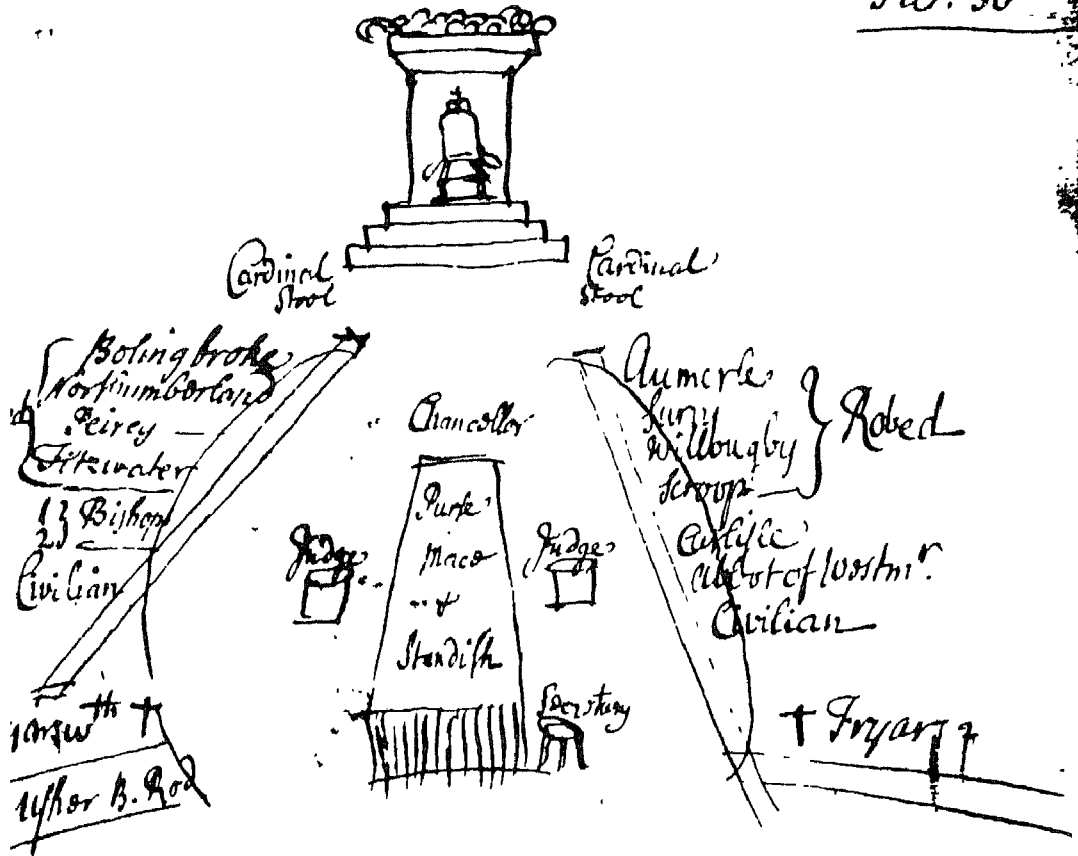 Cardinal
Stool
Cardinal
Stool
Bolingbroke
Northumberland
Peircy
Fitzwater
1
2
Bishop
Civilian
Chancellor
Purse
Mace
&
Standish
Judge
Judge
Secretary
Aumerle
Surry
Willougby
Scroop
Robed
Carlisle
Abbot of Westmr.
Civilian
usher B. Rod
Fryars